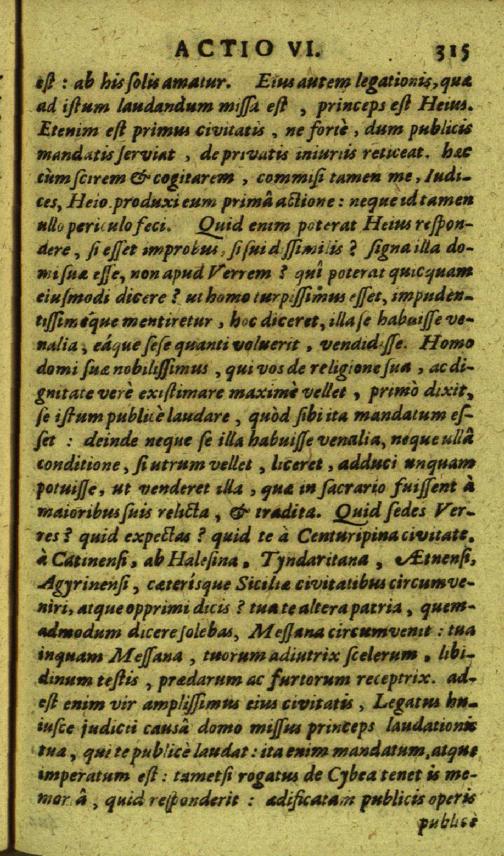 ACTIO VI. 315
est : ab his solis amatur. Eius autem legationis, quæ
ad istum laudandum missa est , princeps est Heius.
Etenim est primus civitatis , ne fortè , dum publicis
mandatis serviat , de privatis iniuriis reticeat. hæc
cùm scirem & cogitarem , commisi tamen me, Iudi-
ces, Heio. produxi eum primâ actione : neque id tamen
ullo periculo feci. Quid enim poterat Heius respon-
dere , si esset improbus, si sui dissimilis ? signa illa do-
mi suæ esse, non apud Verrem ? quî poterat quicquam
eiusmodi dicere ? ut homo turpissimus esset, impuden-
tissiméque mentiretur , hoc diceret, illa se habuisse ve-
nalia, eáque sese quanti voluerit , vendidisse. Homo
domi suæ nobilissimus , qui vos de religione sua , ac di-
gnitate verè existimare maximè vellet , primò dixit,
se istum publicè laudare , quòd sibi ita mandatum es-
set : deinde neque se illa habuisse venalia, neque ullâ
conditione , si utrum vellet , liceret , adduci unquam
potuisse, ut venderet illa , quæ in sacrario fuissent à
maioribus suis relicta , & tradita. Quid sedes Ver-
res ? quid expectas ? quid te à Centuripina civitate,
à Catinensi, ab Halesina, Tyndaritana , Ætnensi,
Agyrinensi, cæterísque Siciliæ civitatibus circumve-
niri, atque opprimi dicis ? tua te altera patria , quem-
admodum dicere solebas, Messana circumvenit : tua
inquam Messana , tuorum adiutrix scelerum , libi-
dinum testis , prædarum ac furtorum receptrix. ad-
est enim vir amplissimus eius civitatis , Legatus hu-
iusce judicii causâ domo missus princeps laudationis
tua, qui te publicè laudat : ita enim mandatum, atque
imperatum est : tametsi rogatus de Cybea tenet is me-
moriâ , quid responderit : ædificatam publicis operis
publicè